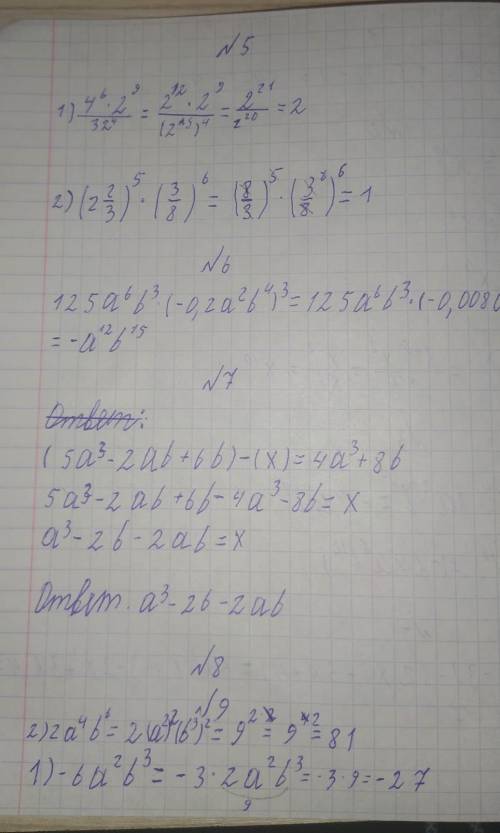 №5
1) 4⁶·2⁹/32⁴ = 2¹²·2⁹/(2⁵)⁴ = 2²¹/2²⁰ = 2
2) (2 2/3)⁵·(3/8)⁶ = (8/3)⁵·(3/8)⁶ = 1
№6
125a⁶b³·(-0,2a²b⁴)³=125a⁶b³·(-0,008
=-a¹²b¹⁵
№7
Ответ:
(5a³-2ab+6b)-(x)=4a³+8b
5a³-2ab+6b-4a³-8b=x
a³-2b-2ab=x
Ответ. a³-2b-2ab
№8
№9
2) 2a⁴b⁶=2(a²)²(b³)²= 9² = 9² =81
1) -6a²b³=-3·2a²b³=-3·9=-27
9